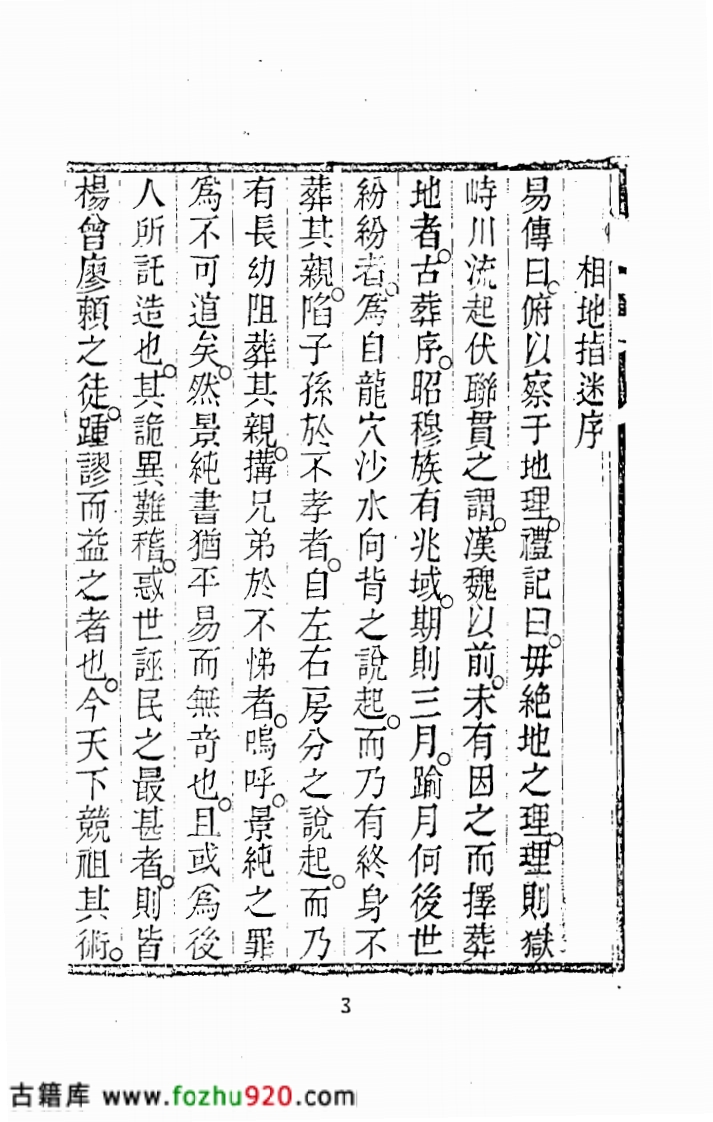 相地指迷序
易傳曰。俯以察于地理。禮記曰。毋絕地之理。理則嶽
峙川流起伏聯貫之謂。漢魏以前。未有因之而擇葬
地者。古葬序。昭穆族有兆域。期則三月。踰月何後世
紛紛者。爲自龍穴沙水向背之說起。而乃有終身不
葬其親。陷子孫於不孝者。自左右房分之說起。而乃
有長幼阻葬其親。搆兄弟於不悌者。嗚呼。景純之罪
爲不可道矣。然景純書猶平易而無奇也。且或爲後
人所託造也。其詭異難稽。惑世誣民之最甚者。則皆
楊曾廖賴之徒。踵謬而益之者也。今天下競祖其術。
3
古籍库 www.fozhu920.com